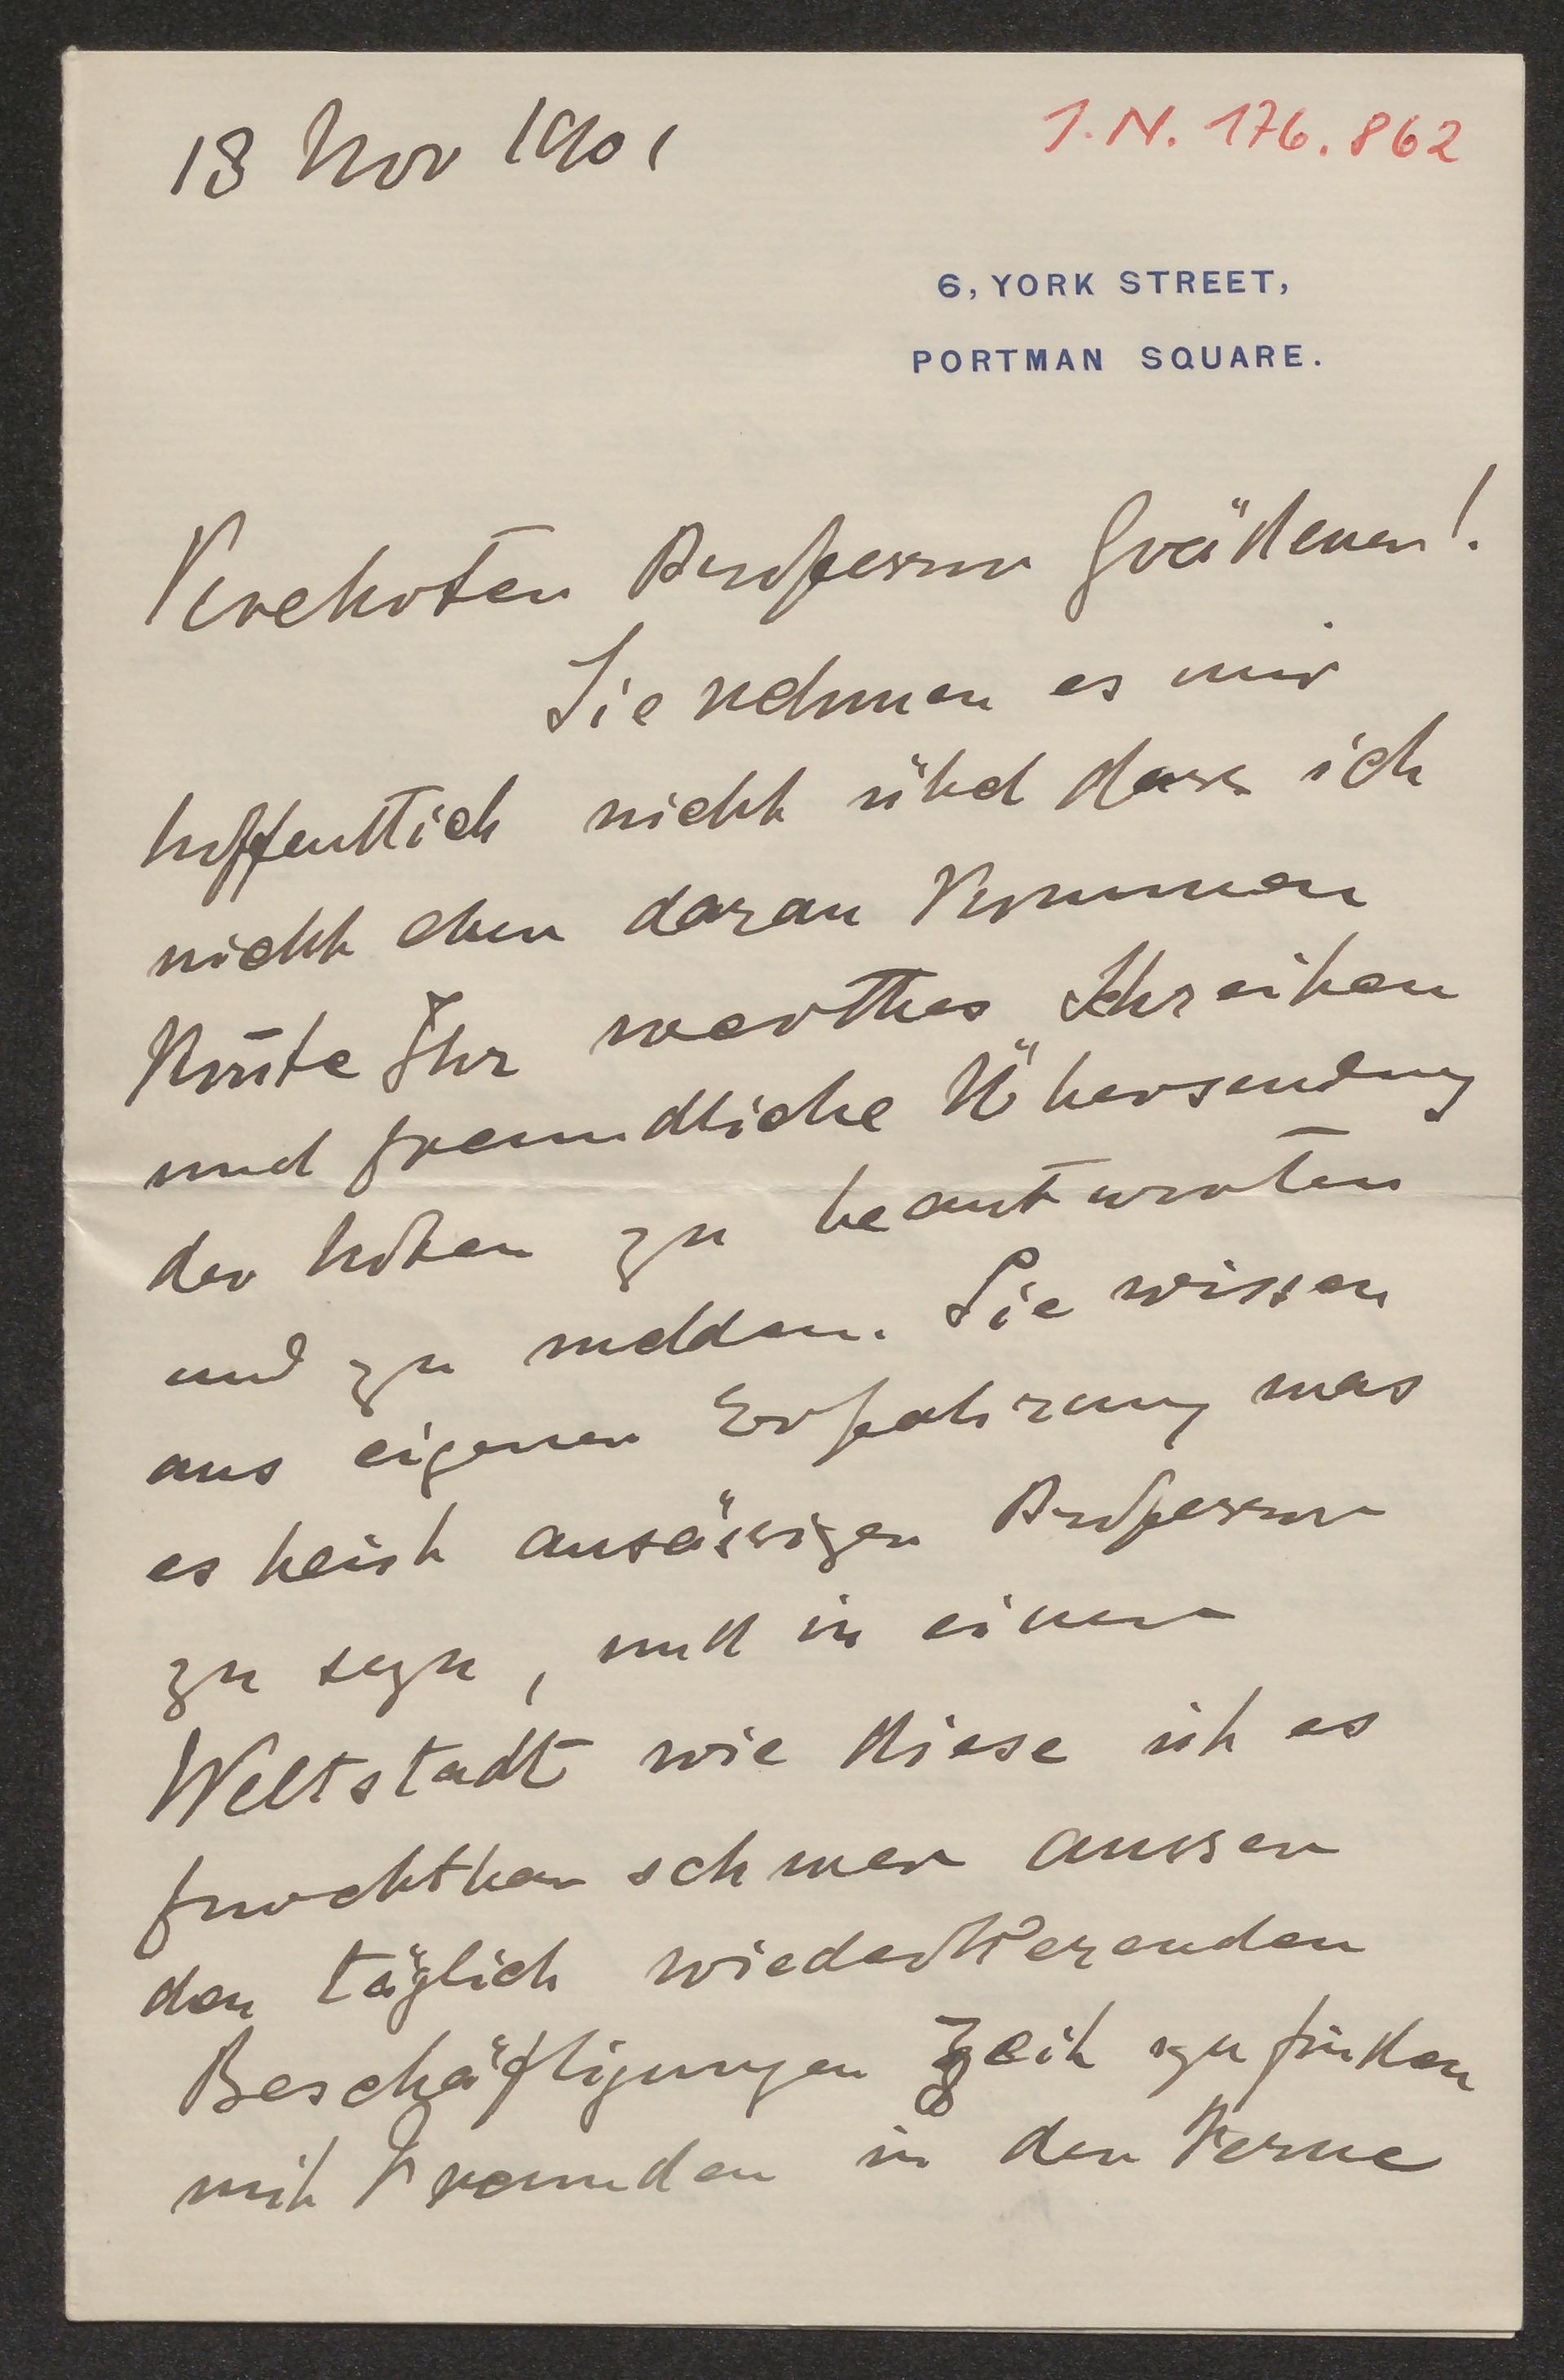 13 Nov 1901
I.N. 176.862
6, YORK STREET,
PORTMAN SQUARE.
Verehrter Professor Grädener!
Sie nehmen es mir
hoffentlich nicht übel dass ich
nicht eher daran kommen
konnte Ihr werthes Schreiben
und freundliche Übersendung
der Noten zu beantworten
und zu melden. Sie wissen
aus eigener Erfahrung was
es heisst ansässiger Professor
zu seyn, und in einer
Weltstadt wie diese ist es
furchtbar schwer ausser
den täglich wiederkerenden
Beschäftigungen Zeit zu finden
mit Freunden in der Ferne